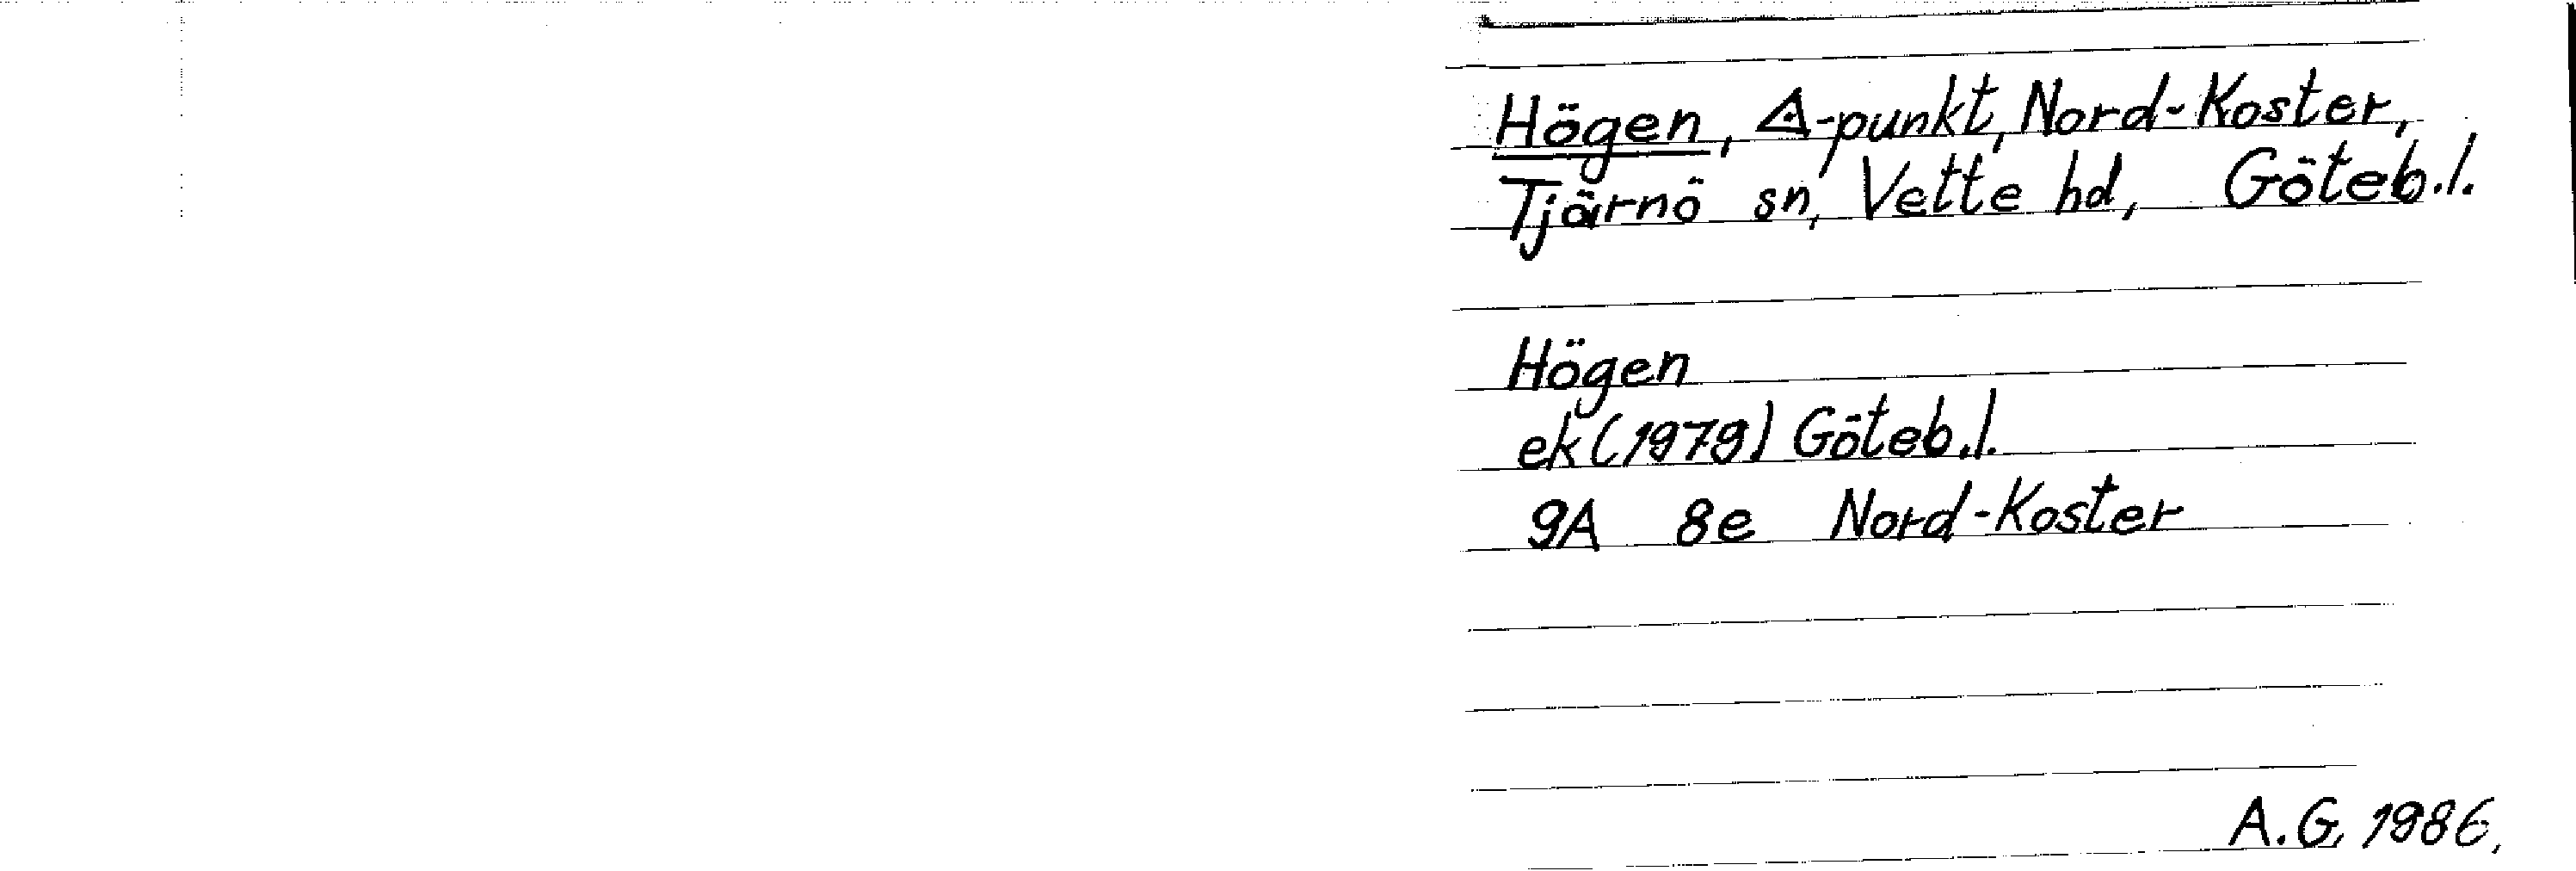 Högen, ◬-punkt, Nord-Koster,
Tjärnö sn, Vette hd, Göteb.l.
Högen
ek (1979) Göteb.l.
9A 8e Nord-Koster
A.G. 1986.